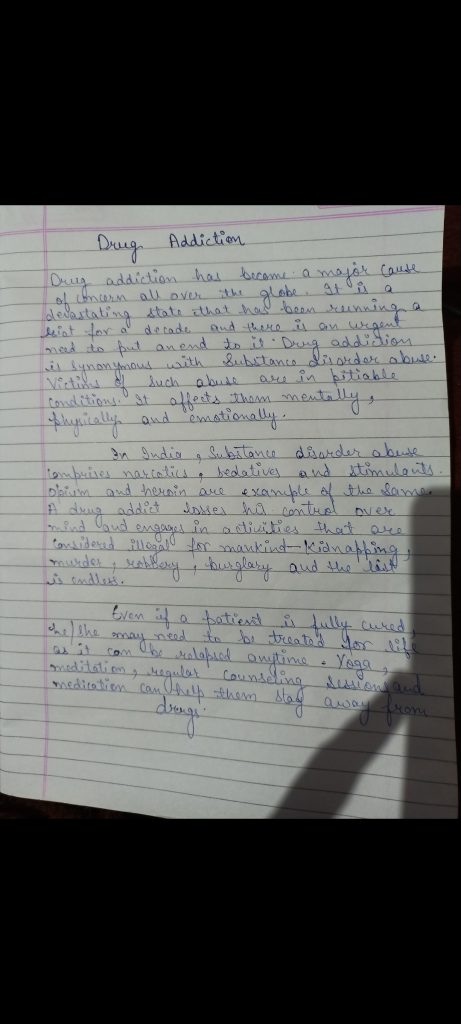 Drug Addiction
Drug addiction has become a major cause
of concern all over the globe. It is a
devastating state that has been running a
riot for a decade and there is an urgent
need to put an end to it. Drug addiction
is synonymous with Substance disorder abuse.
Victims of such abuse are in pitiable
conditions. It affects them mentally,
physically and emotionally.
In India, Substance disorder abuse
comprises narcotics, sedatives and stimulants.
Opium and heroin are example of the same.
A drug addict losses his control over
mind and engages in activities that are
considered illegal for mankind - Kidnapping,
murder, robbery, burglary and the list
is endless.
Even if a patient is fully cured,
he/she may need to be treated for life
as it can be relapsed anytime. Yoga,
meditation, regular counseling sessions and
medication can help them stay away from
drugs.